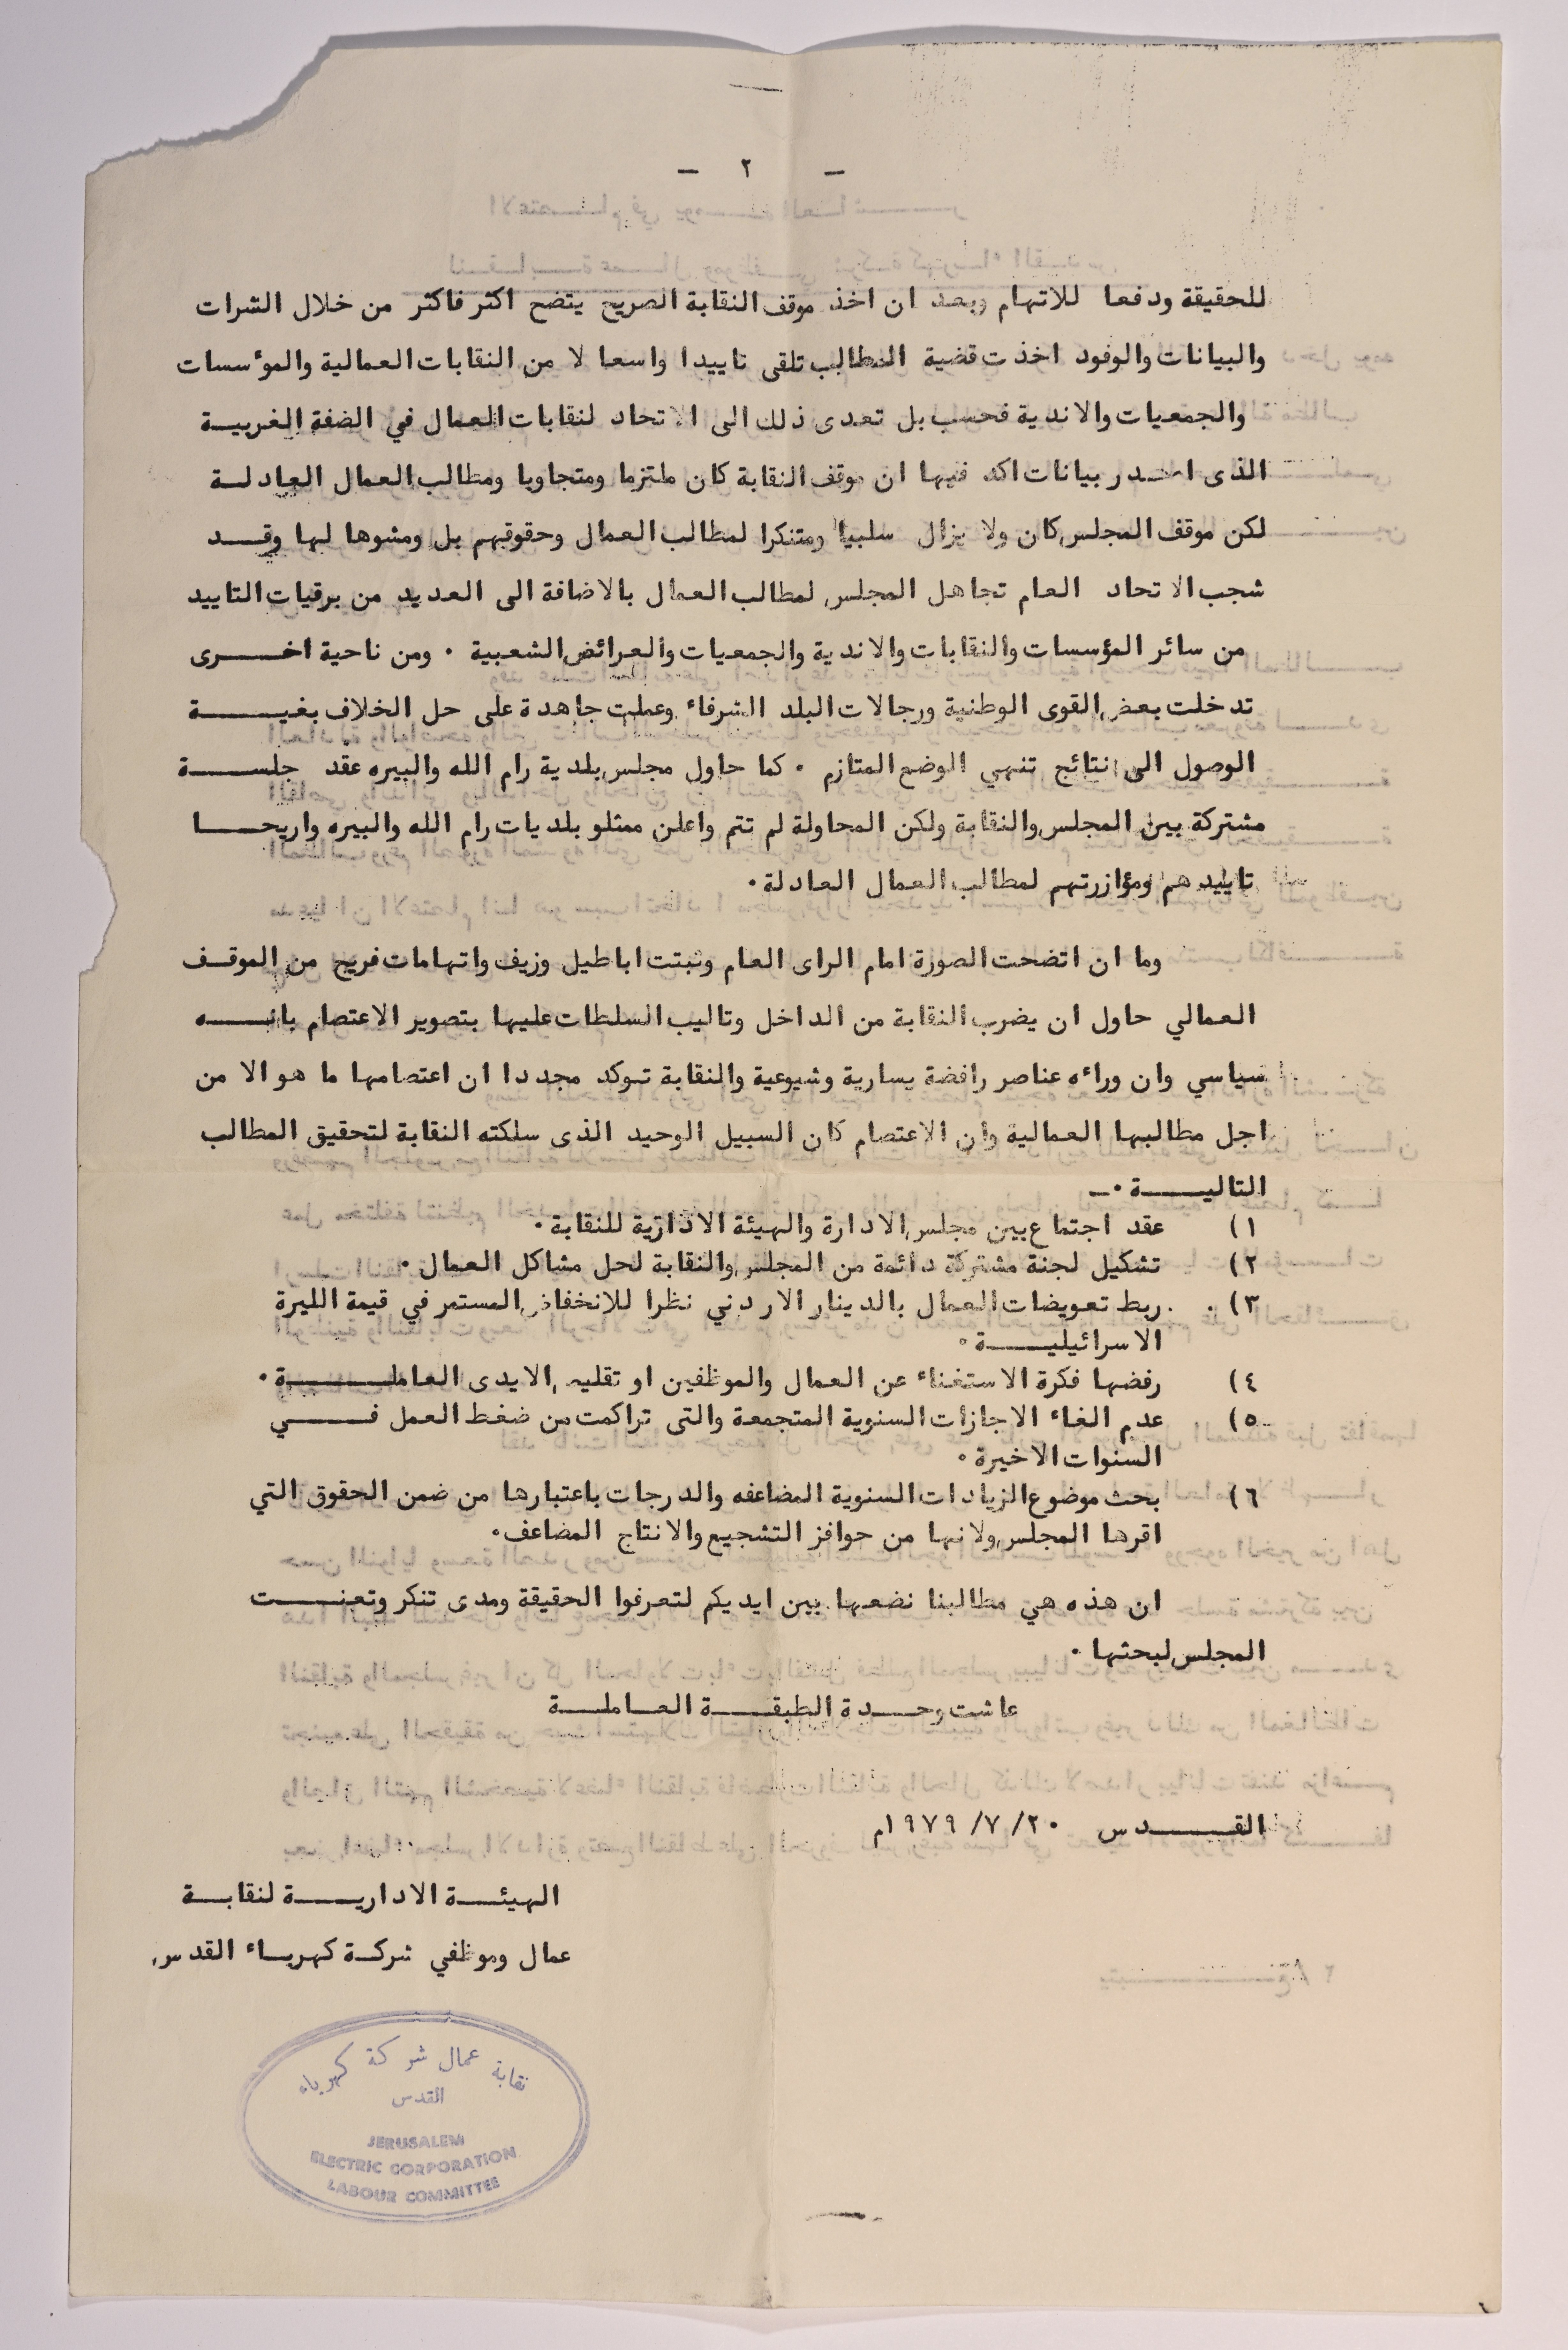 - ٢ -
للحقيقة ودفعا للاتهام وبعد ان اخذ موقف النقابة الصريح يتضح اكثر فاكثر من خلال الشرات
والبيانات والوفود اخذت قضية المطالب تلقى تاييدا واسعا لا من النقابات العمالية والموٴسسات
والجمعيات والاندية فحسب بل تعدى ذلك الى الاتحاد لنقابات العمال في الضفة الغربيــة
الذى اصدر بيانات اكد فيها ان موقف النقابة كان ملتزما ومتجاوبا ومطالب العمال العادلــة
لكن موقف المجلس كان ولا يزال سلبيا ومتنكرا لمطالب العمال وحقوقهم بل ومشوها لها وقــد
شجب الاتحاد العام تجاهل المجلس لمطالب العمال بالاضافة الى العديد من برقيات التاييد
من سائر المؤسسات والنقابات والاندية والجمعيات والعرائض الشعبية ٠ ومن ناحية اخــرى
تدخلت بعض القوى الوطنية ورجالات البلد الشرفاء وعملت جاهدة على حل الخلاف بغيــة
الوصول الى نتائج تنهي الوضع المتازم ٠ كما حاول مجلس بلدية رام الله والبيره عقد جلســة
مشتركة بين المجلس والنقابة ولكن المحاولة لم تتم واعلن ممثلو بلديات رام الله والبيره واريحــا
تاييدهم ومؤازرتهم لمطالب العمال العادلة٠
وما ان اتضحت الصورة امام الراى العام وثبتت اباطيل وزيف واتهامات فريج من الموقــف
العمالي حاول ان يضرب النقابة من الداخل وتاليب السلطات عليها بتصوير الاعتصام بانــه
سياسي وان وراءه عناصر رافضة يسارية وشيوعية والنقابة توكد مجددا ان اعتصامها ما هو الا من
اجل مطالبها العمالية وان الاعتصام كان السبيل الوحيد الذى سلكته النقابة لتحقيق المطالب
التاليــة ٠ــ
١) عقد اجتماع بين مجلس الادارة والهيئة الادارية للنقابة٠
٢) تشكيل لجنة مشتركة دائمة من المجلس والنقابة لحل مشاكل العمال ٠
٣) ربط تعويضات العمال بالدينار الاردني نظرا للانخفاض المستمر في قيمة الليرة
الاسرائيليــة ٠
٤) رفضها فكرة الاستغناء عن العمال والموظفين او تقليص الايدى العاملــة ٠
٥) عدم الغاء الاجازات السنوية المتجمعة والتى تراكمت من ضغط العمل فــي
السنوات الاخيرة ٠
٦) بحث موضوع الزيادات السنوية المضاعفه والدرجات باعتبارها من ضمن الحقوق التي
اقرها المجلس ولانها من حوافز التشجيع والانتاج المضاعف٠
ان هذه هي مطالبنا نضعها بين ايديكم لتعرفوا الحقيقة ومدى تنكر وتعنــت
المجلس لبحثها ٠
عاشت وحــدة الطبقــة العاملــة
القــدس ٢٠/ ٧/ ١٩٧٩م
الهيئــة الاداريــة لنقابــة
عمال وموظفي شركــة كهربــاء القدس
نقابة عمال شركة كهرباء
القدس
JERUSALEM
ELECTRIC CORPORATION
LABOUR COMMITTEE